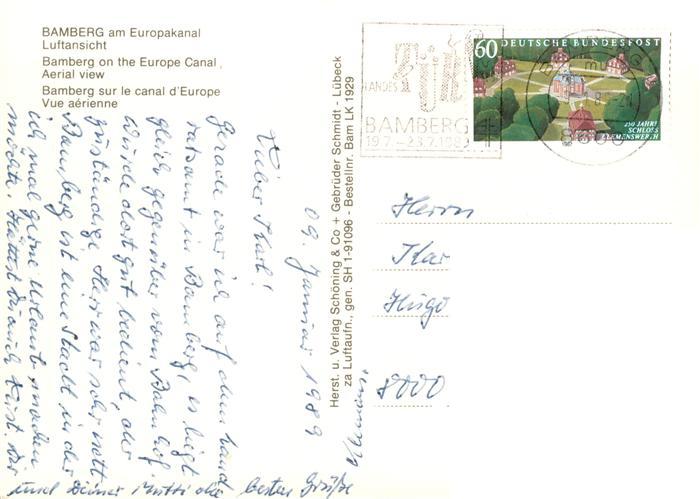 BAMBERG am Europakanal
Luftansicht
Bamberg on the Europe Canal,
Aerial view
Bamberg sur le canal d'Europe
Vue aérienne
60 DEUTSCHE BUNDESPOST
250 JAHRE
SCHLOSS
CLEMENSWERTH
1987
LANDES
BAMBERG
19.7.–23.7.198
Herst. u. Verlag Schöning & Co + Gebrüder Schmidt - Lübeck
za Luftaufn., gen. SH 1-91096 - Bestellnr. Bam LK 1929
09. Januar 1989
Lieber Karl!
Gerade war ich auf dem Land
ratsamt in Bamberg, es liegt
gleich gegenüber vom Bahnhof.
Würde dort gut bedient, der
zuständige Herr war sehr nett
Bamberg ist eine Stadt in der
ich mal gerne Urlaub machen
möchte. Hättest Du auch Lust. Dir
und Deiner Mutti die besten Grüße
Herrn
Kar
Hugo
8000